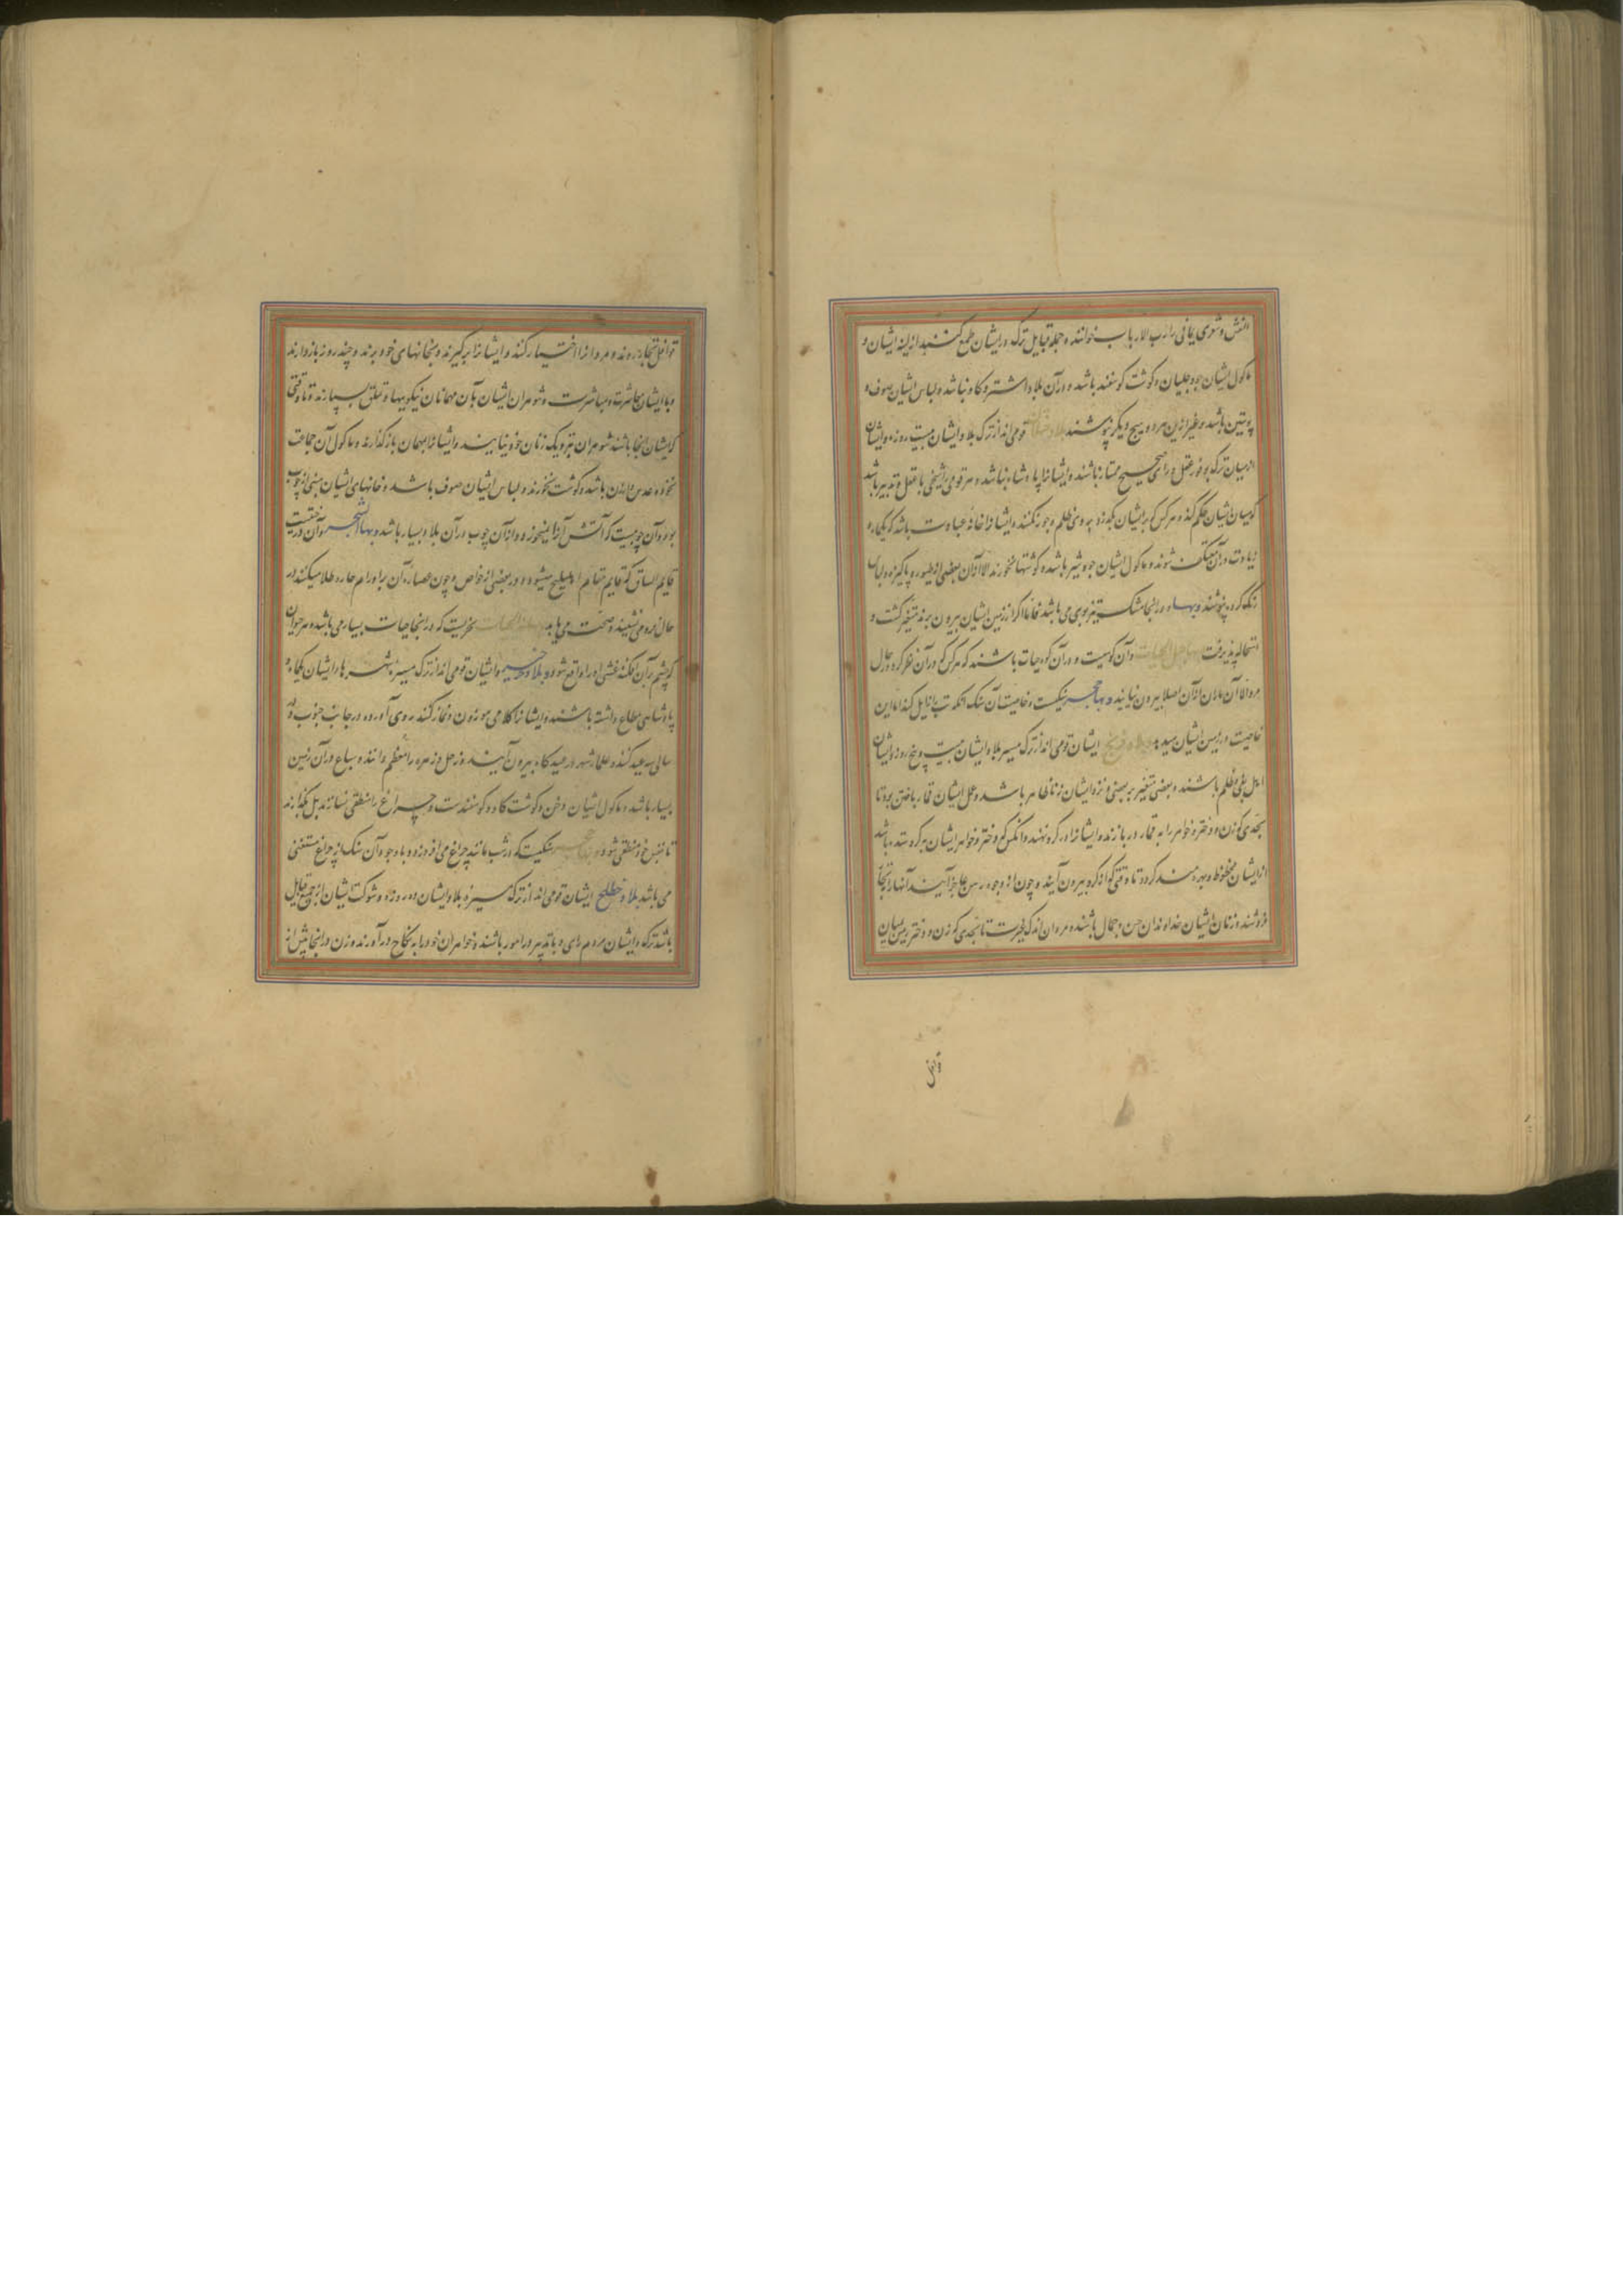 النعش و شعری یمانی را رب الارباب خوانند و جمله قبایل ترک در ایشان طمع کنند از لینه ایشان و
ماکول ایشان جو و جلبان و گوشت گوسفند باشد و در آن بلاد اشتر و گاو نباشد و لباس ایشان صوف و
پوستین باشد و غیر ازین هر دو هیچ دیگر نپوشند بلاد قومی اند از ترک بلاد ایشان بیست روزه و ایشان
از میان ترک بوفور عقل و رای صحیح ممتاز باشند و ایشانرا پادشاه نباشد و هر قومی را شیخی با عقل و تدبیر باشد
که میان ایشان حکم کند و هر کس که برایشان بگذرد بروی ظلم و جور نکنند و ایشانرا خانهٔ عبادت باشد که یکماه و
زیادت در آن معتکف شوند و ماکول ایشان جو و شیر باشد و گوشتها نخورند الا از آن بعضی از طیور و پاکیزه و لباس
رنگ کرده پوشند و بها و در آنجا مشک تیزبوی می باشد فاما اگر از زمین ایشان بیرون برند متغیر گشت و
استحاله پذیرفت و بها جبل الحیات و آن کوهیست و در آن کوه حیات باشند که هر کس که در آن نظر کرد در حال
مرد الا آن ماران از آن اصلا بیرون نیایند و بها حجر سنگیست و خاصیت آن سنگ آنکه تب را زایل کند اما این
خاصیت در زمین ایشان ایشان قومی اند از ترک مسیر بلاد ایشان بیست و پنج روزه و ایشان
اهل بغی و ظلم باشند و بعضی متغیر بر بعضی و زنا ایشان ظاهر باشد و عمل ایشان قمار باختن بود تا
بحدی که زن و دختر و خواهر را به قمار در بازند و ایشانرا در گرو نهند و آنکس که دختر و خواهر ایشان بگرو ستده باشد
از ایشان محظوظ و بهره مند گردد تا وقتی که از گرو بیرون آیند و چون از وجوه رهن عاجز آیند آنها را به تجار
فروشند و زنان ایشان خداوندان حسن و جمال باشند و مردان اندک غیرت تا بحدی که زن و دختر رییس ایشان
قوافل
قوافل تجار روند و مردانرا اختیار کنند و ایشانرا برگیرند و بخانهای خود برند و چند روز باز دارند
و با ایشان معاشرت و مباشرت و شوهران ایشان بآن مهمانان نیکوییها و تملق بسیار نمود تا وقتی
که ایشان آنجا باشند شوهران بنزدیک زنان خود نیایند و ایشانرا بمهمان باز گذارند و ماکول آن جماعت
نخود و عدس و ارزن باشد و گوشت نخورند و لباس ایشان صوف باشد و خانهای ایشان مبنی از چوب
بود و آن چوبیست که آتش آنرا نمیخورد و از آن چوب در آن بلاد بسیار باشد و بها الشجر و آن درختیست
قایم الساق که قایم مقام اهلیلج میشود در بعضی از خواص و چون عصاره آن بر اورام حاره طلا میکنند در
حال فرو می نشیند و صحت می یابد الحیات بحریست که در آنجا حیات بسیار می باشد و هر حیوان
که چشم بر آن افکند غشی او را واقع شود و بلاد و ایشان قومی اند از ترک مسیره شهرها و ایشان یکماه و
پادشاهی مطاع داشته باشند و ایشانرا کلامی موزون و نماز کنند روی آورده در جانب جنوب و در
سالی سه عید کنند و علمای شهر در عیدگاه بیرون آیند و زحل و زهره را معظم دانند و سباع در آن زمین
بسیار باشد و ماکول ایشان دخن و گوشت گاو و گوسفندست و چراغ را منطفی نسازند بل بگذارند
تا بنفس خود منطفی شود و بها حجر سنگیست که در شب مانند چراغ می افروزد و با وجود آن سنگ از چراغ مستغنی
می باشند بلاد خطلخ ایشان قومی اند از ترک مسیره بلاد ایشان ده روزه و شوکت ایشان از جمیع قبایل
باشد ترک و ایشان مردم رای و با تدبیر در امور باشند و خواهران خود را به نکاح درآورند و زن در آنجا بیش از